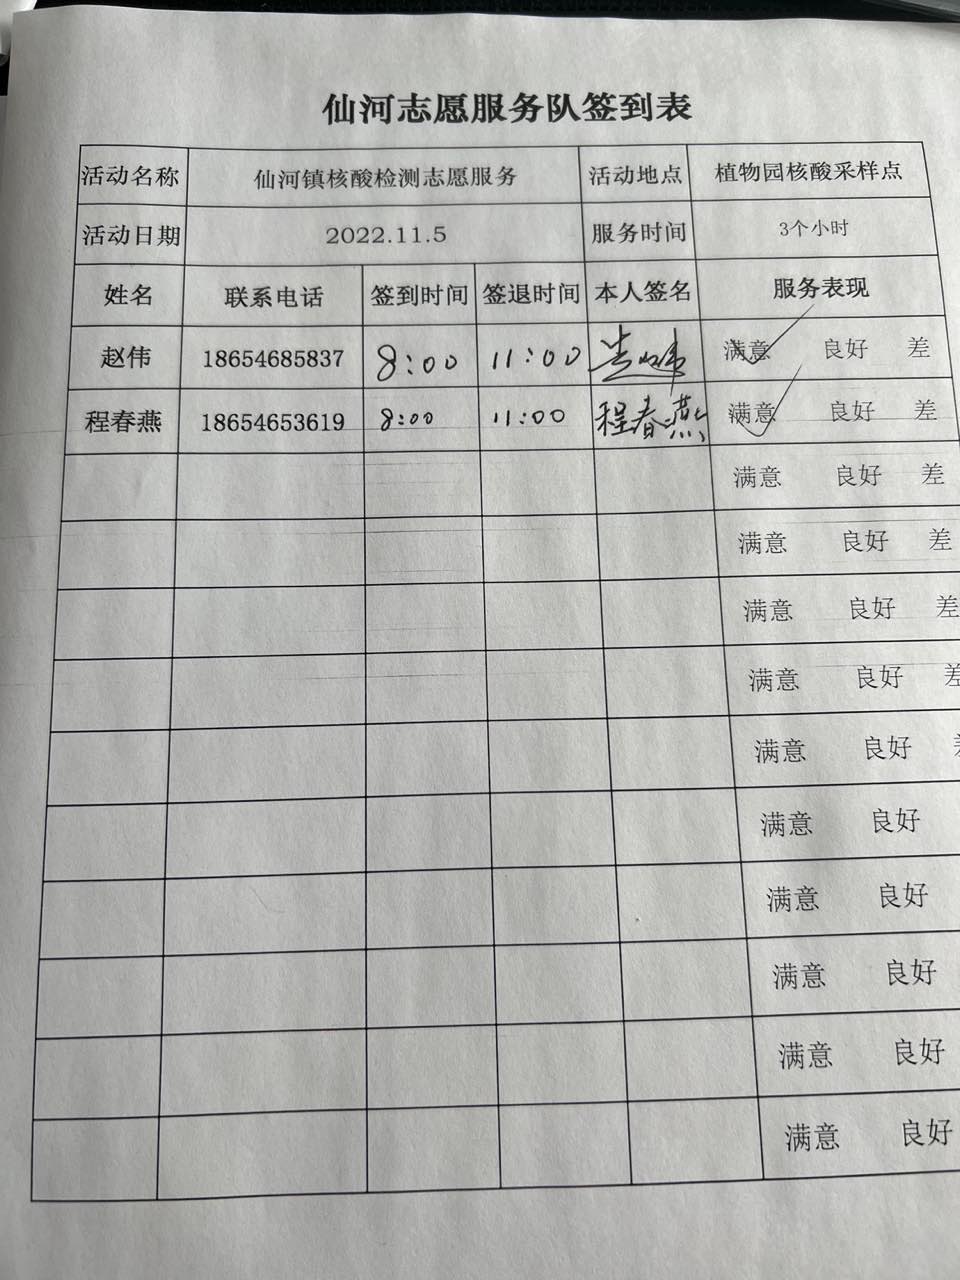 仙河志愿服务队签到表
活动名称 仙河镇核酸检测志愿服务 活动地点 植物园核酸采样点
活动日期 2022.11.5 服务时间 3个小时
姓名 联系电话 签到时间 签退时间 本人签名 服务表现
赵伟 18654685837 8:00 11:00 满意 良好 差
程春燕 18654653619 8:00 11:00 程春燕 满意 良好 差
满意 良好 差
满意 良好 差
满意 良好 差
满意 良好 差
满意 良好
满意 良好
满意 良好
满意 良好
满意 良好
满意 良好